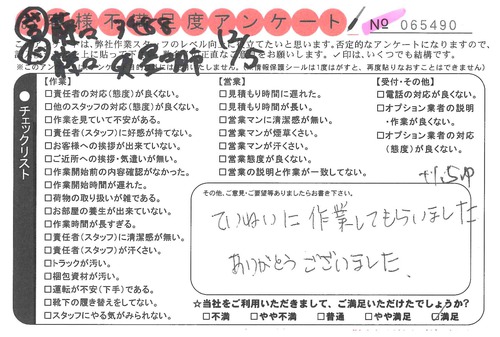 お客様不満足度アンケート
№ 065490
このアンケートは、弊社作業スタッフのレベル向上に役立てたいと思います。否定的なアンケートになりますので、
をお願いします。✓印は、いくつでも結構です。
チェックリスト
【作業】
□責任者の対応(態度)が良くない。
□他のスタッフの対応(態度)が良くない。
□作業を見ていて不安がある。
□責任者(スタッフ)に好感が持てない。
□お客様への挨拶が出来ていない。
□ご近所への挨拶・気遣いが無い。
□作業開始前の内容確認がなかった。
□作業開始時間が遅れた。
□荷物の取り扱いが雑である。
□お部屋の養生が出来ていない。
□作業時間が長すぎる。
□責任者(スタッフ)に清潔感が無い。
□責任者(スタッフ)が汗くさい。
□トラックが汚い。
□梱包資材が汚い。
□運転が不安(下手)である。
□靴下の履き替えをしてない。
□スタッフにやる気がみられない。
【営業】
□見積もり時間に遅れた。
□見積もり時間が長い。
□営業マンに清潔感が無い。
□営業マンが煙草くさい。
□営業マンが汗くさい。
□営業態度が良くない。
□営業の説明と作業が一致してない。
【受付・その他】
□電話の対応が良くない。
□オプション業者の説明
・作業が良くない。
□オプション業者の対応
(態度)が良くない。
その他、ご意見・ご要望等ありましたらお書き下さい。
ていねいに作業してもらいました
ありがとうございました.
☆当社をご利用いただきまして、ご満足いただけたでしょうか?
□不満 □やや不満 □普通 □やや満足 ☑満足